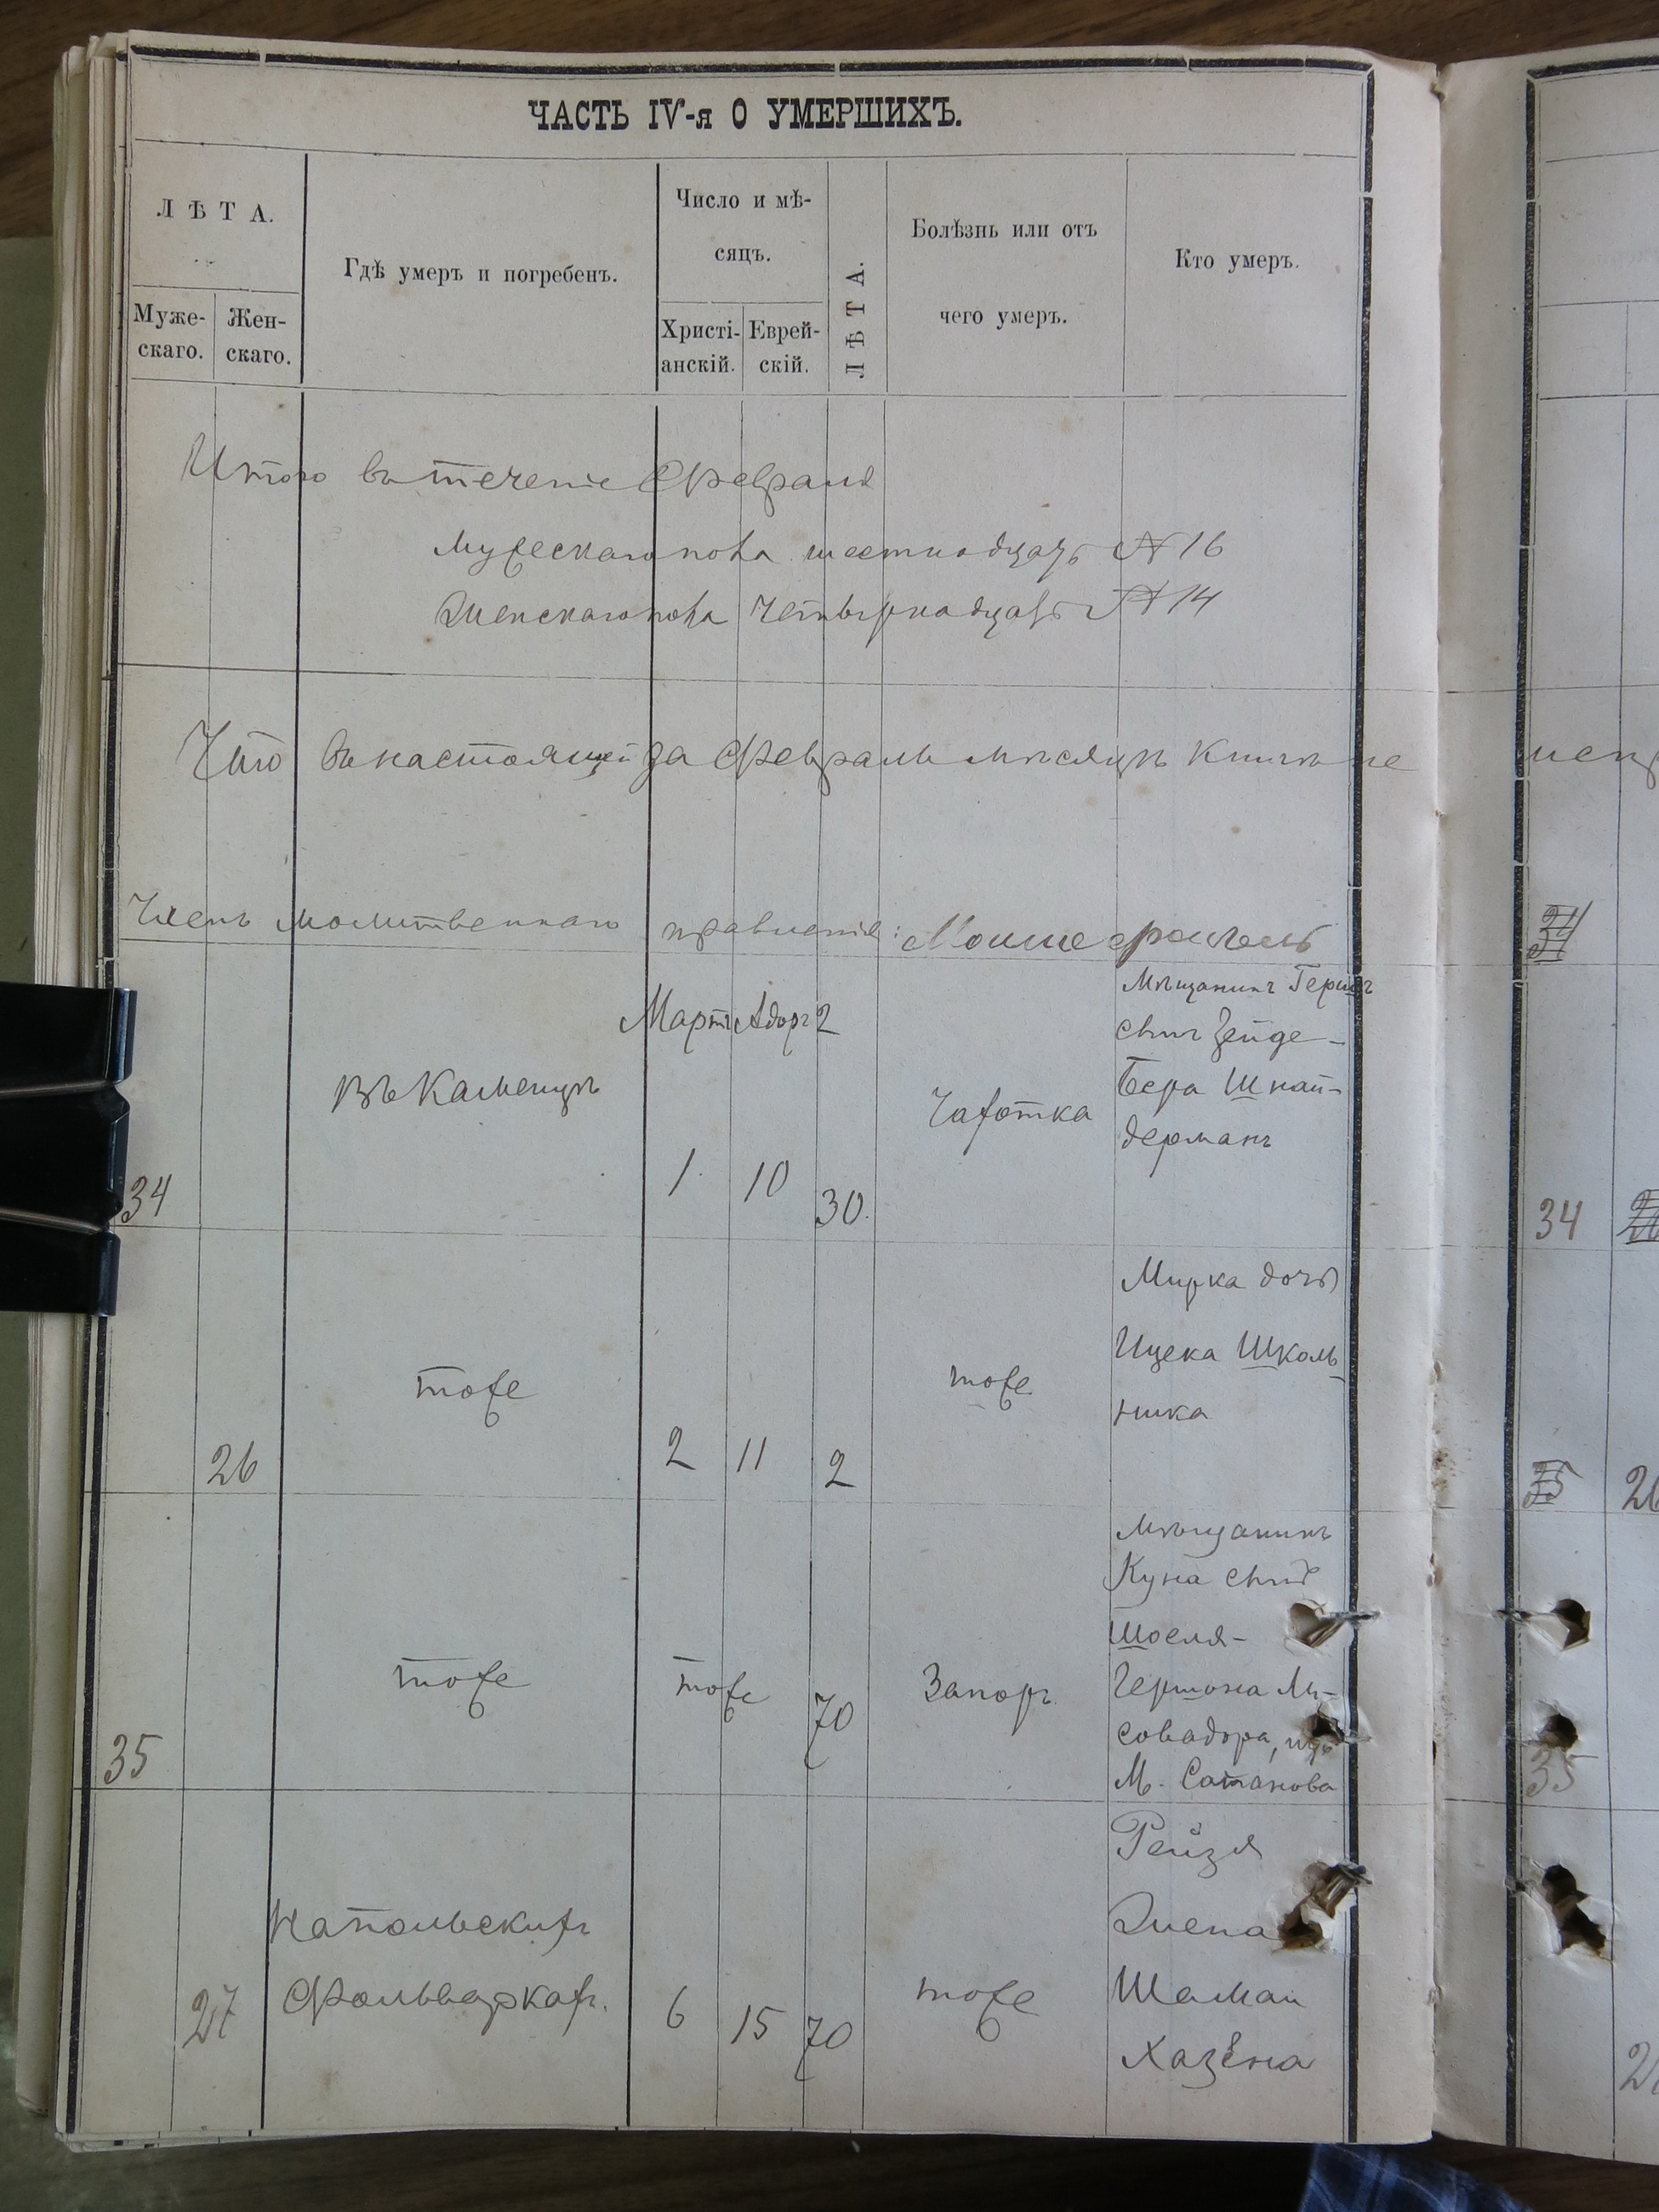 ЧАСТЬ IV-я О УМЕРШИХЪ.
ЛѢТА.
Муже-
скаго.
Жен-
скаго.
Гдѣ умеръ и погребенъ.
Число и мѣ-
сяцъ.
Христі-
анскій.
Еврей-
скій.
ЛѢТА.
Болѣзнь или отъ
чего умеръ.
Кто умеръ.
Итого въ теченіе Февраля
Мужескаго пола шестнадцать № 16
Женскаго пола четырнадцать № 14
Что въ настоящей за Февраль мѣсяцъ книгѣ не
Членъ молитвеннаго правленія: Мошие
Мартъ Адоръ 2
34
Въ Каменцѣ
1.
10
30.
Чахотка
Мѣщанинъ Гершъ
сынъ Зейде-
Бера Шнай-
дерманъ
26
тоже
2
11
2
тоже
Мирка дочь
Ицека Школь-
ника
35
тоже
тоже
70
Запоръ
Мѣщанинъ
Куна сынъ
Шоеля-
Гершона Ли-
совадора, изъ
М. Сатанова
27
Напольскихъ
Фольваркахъ.
6
15
70
тоже
Рейзя
Жена
Шамаи
Хазена
34
34
35
26
35